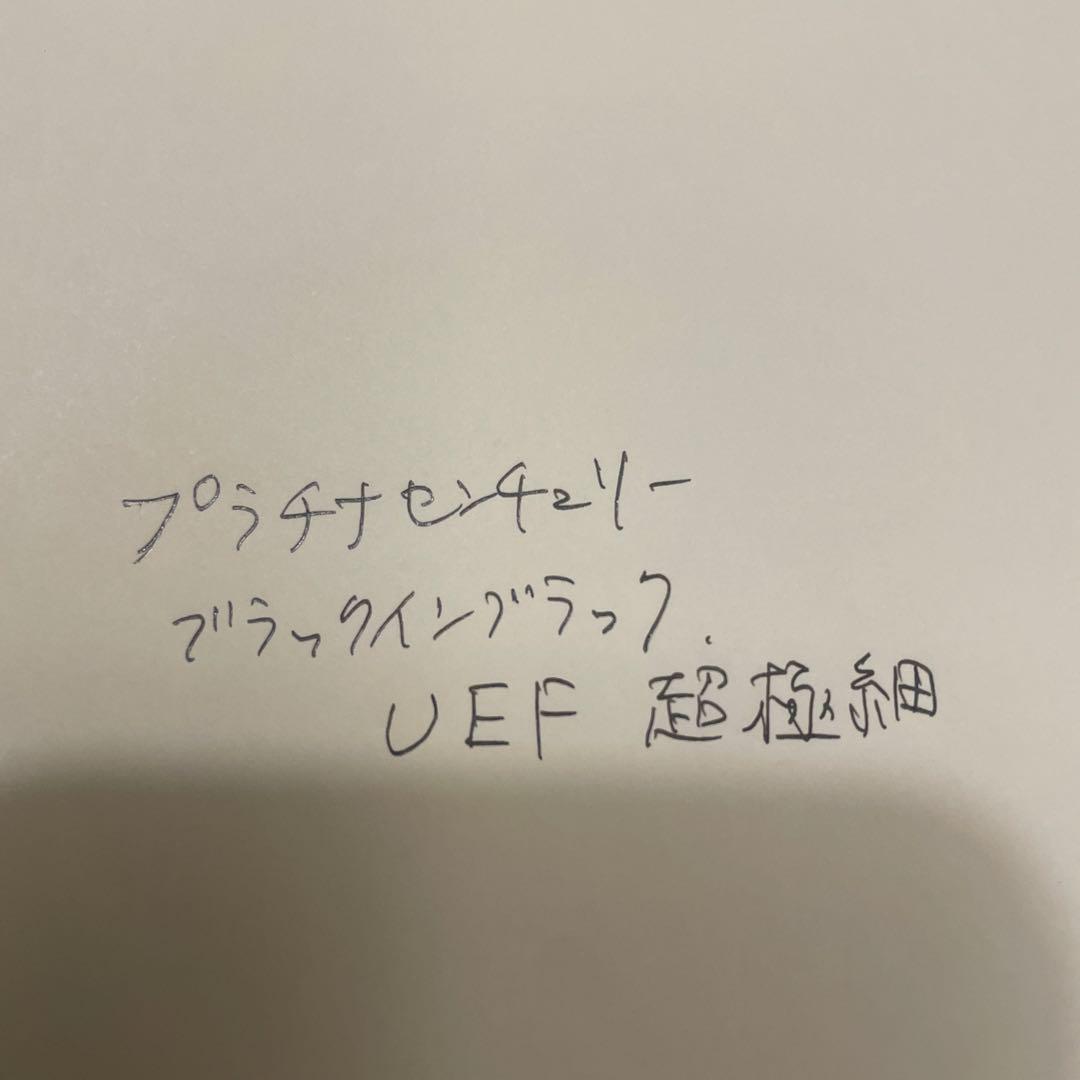 プラチナセンチュリー
ブラックインブラック.
UEF 超極細